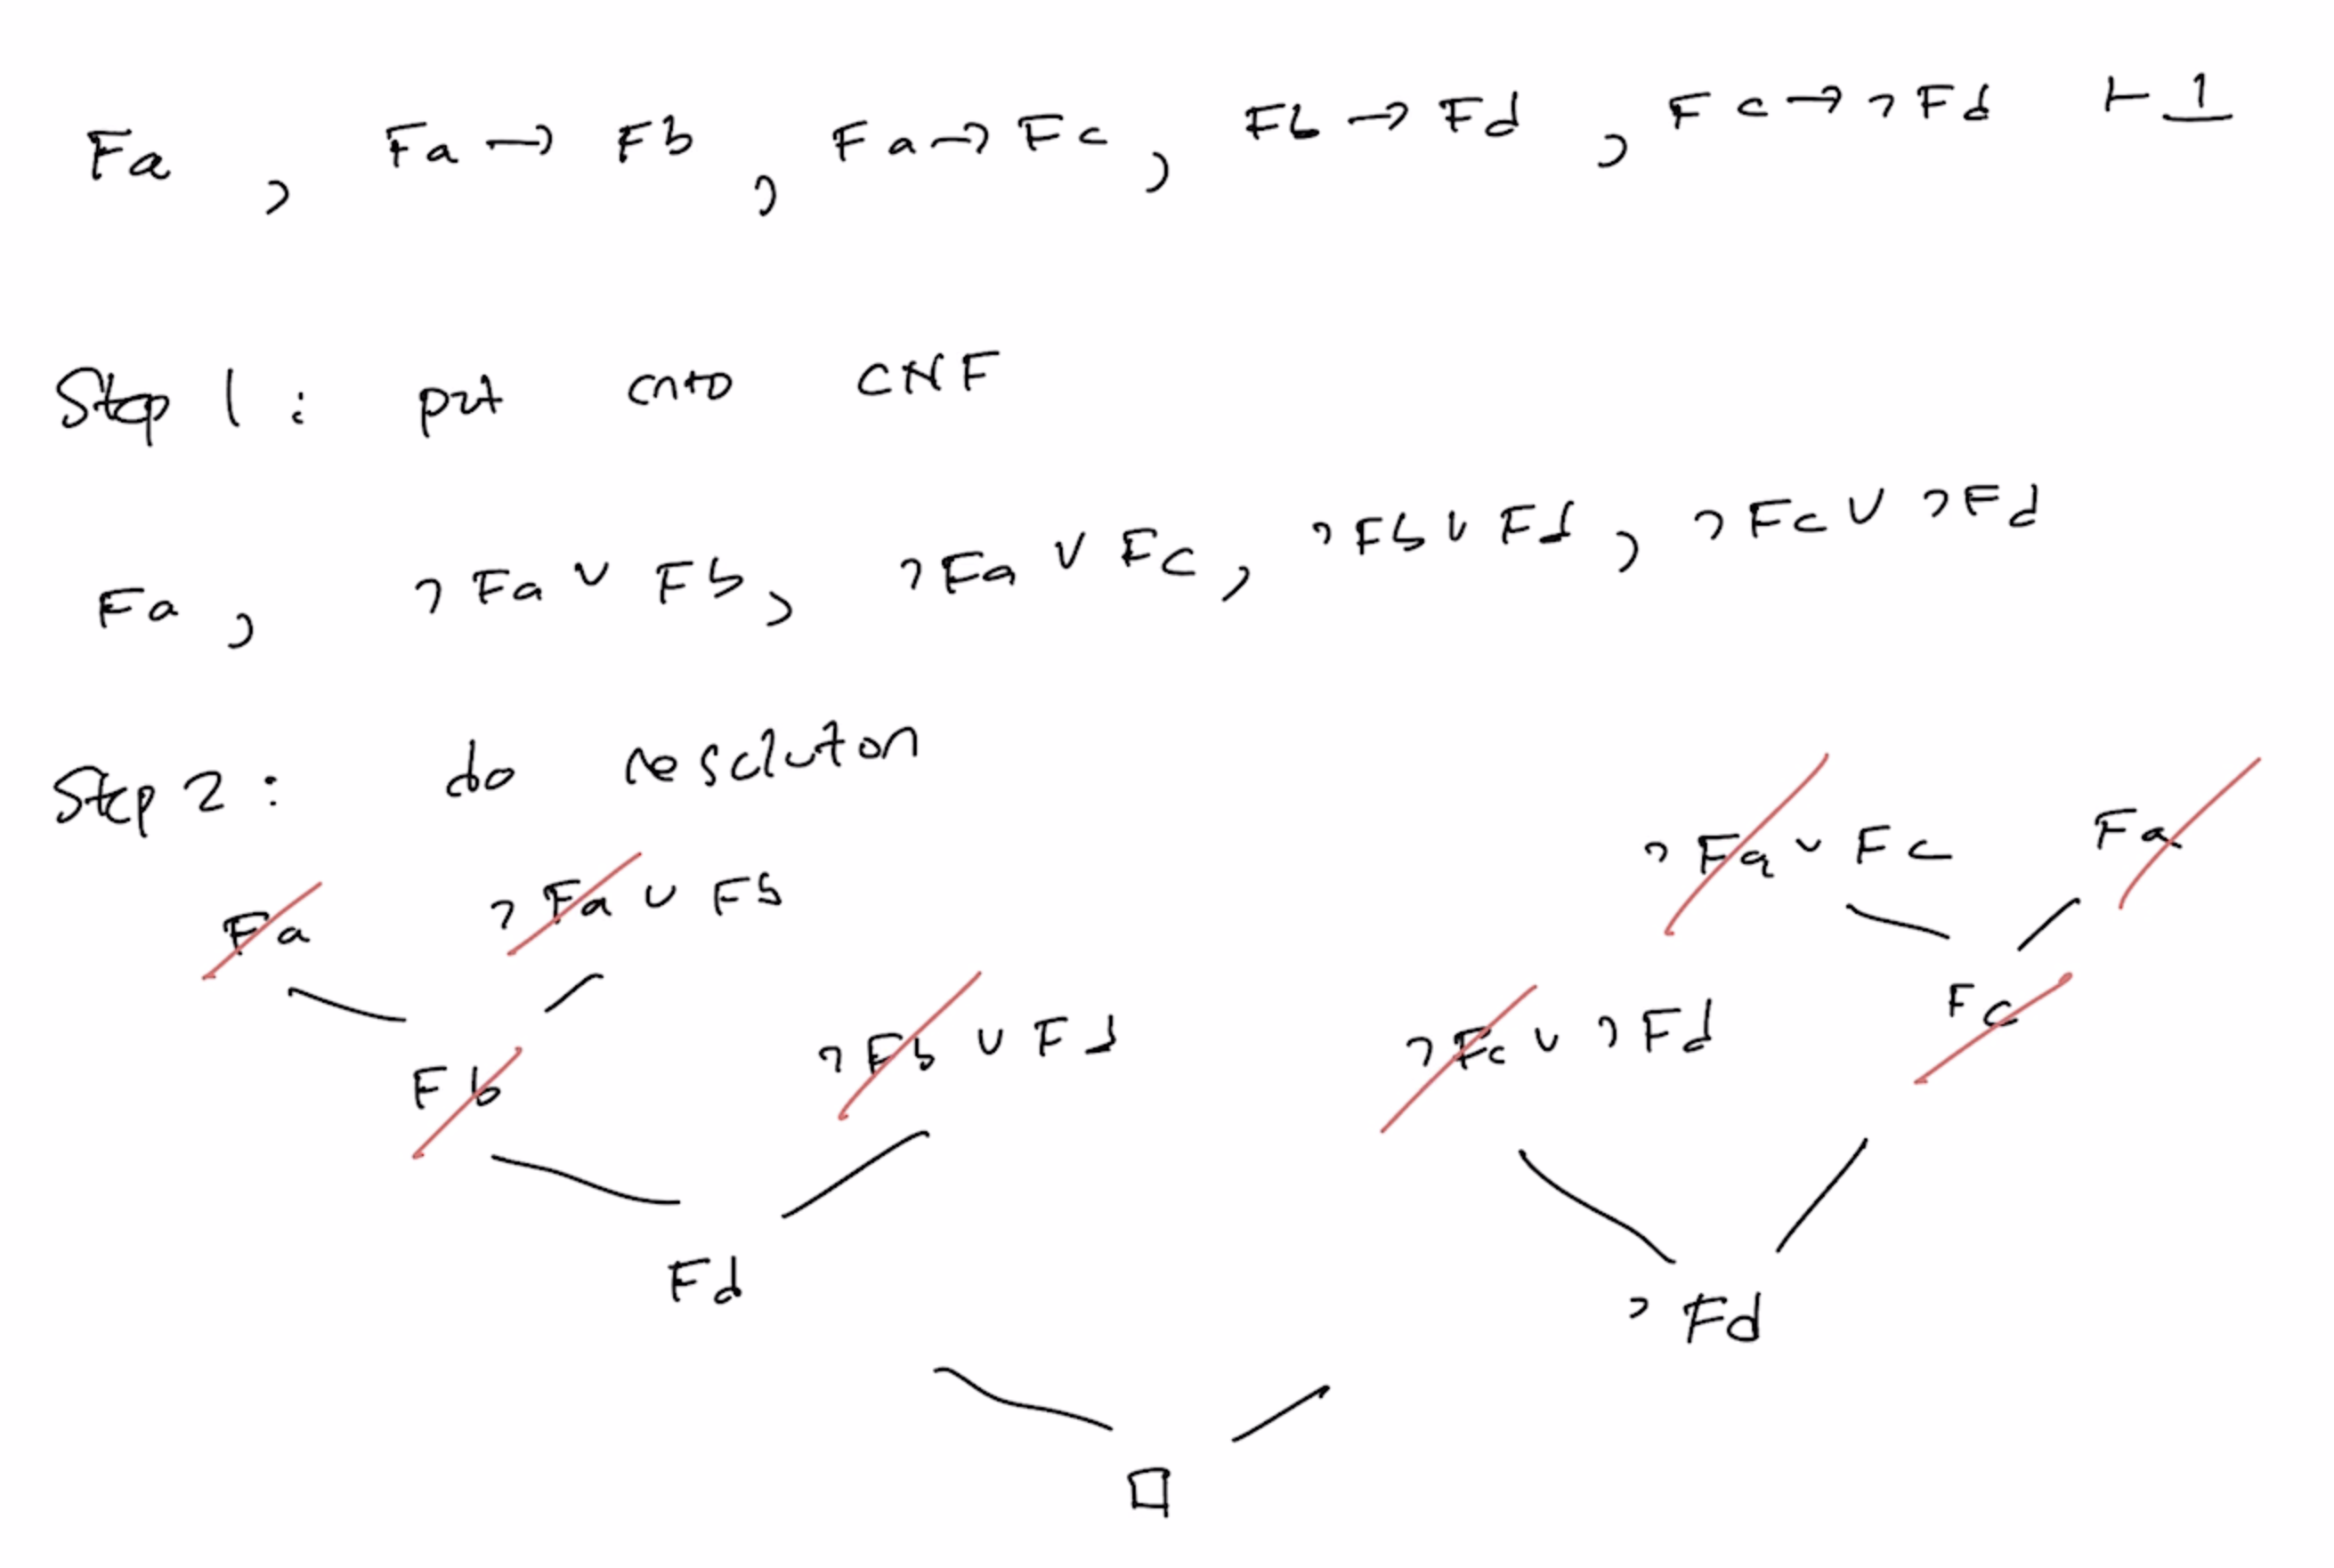 Fa , Fa → Fb , Fa → Fc , Fb → Fd , Fc → ¬Fd ⊢ ⊥
Step 1 : put into CNF
Fa , ¬Fa ∨ Fb , ¬Fa ∨ Fc , ¬Fb ∨ Fd , ¬Fc ∨ ¬Fd
Step 2 : do resolution
¬Fa ∨ Fc Fa
Fa ¬Fa ∨ Fb
Fb ¬Fb ∨ Fd ¬Fc ∨ ¬Fd Fc
Fd ¬Fd
□